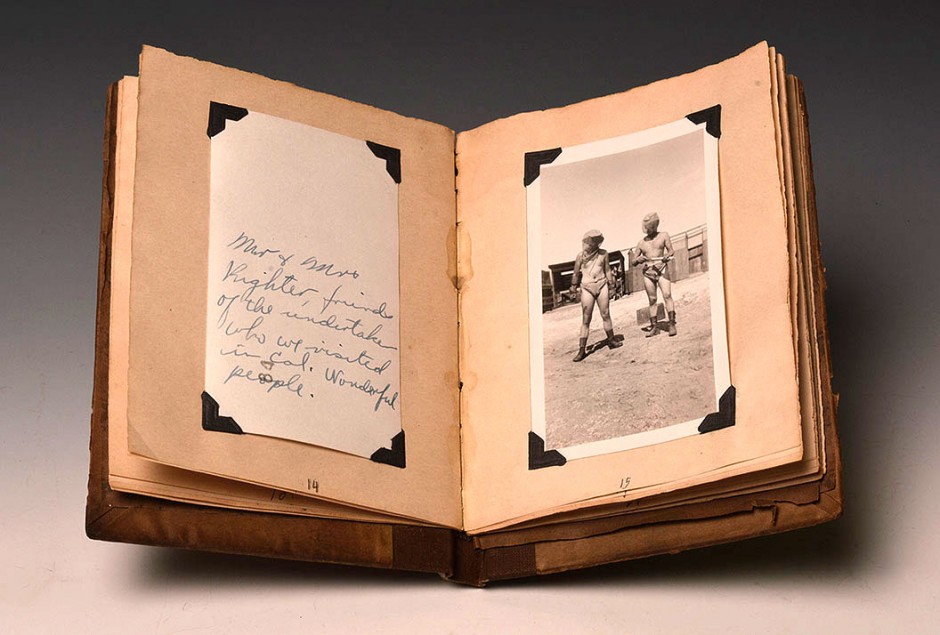 Mr & Mrs
Righter, friends
of the undertaker
who we visited
in Cal. Wonderful
people.
14
15